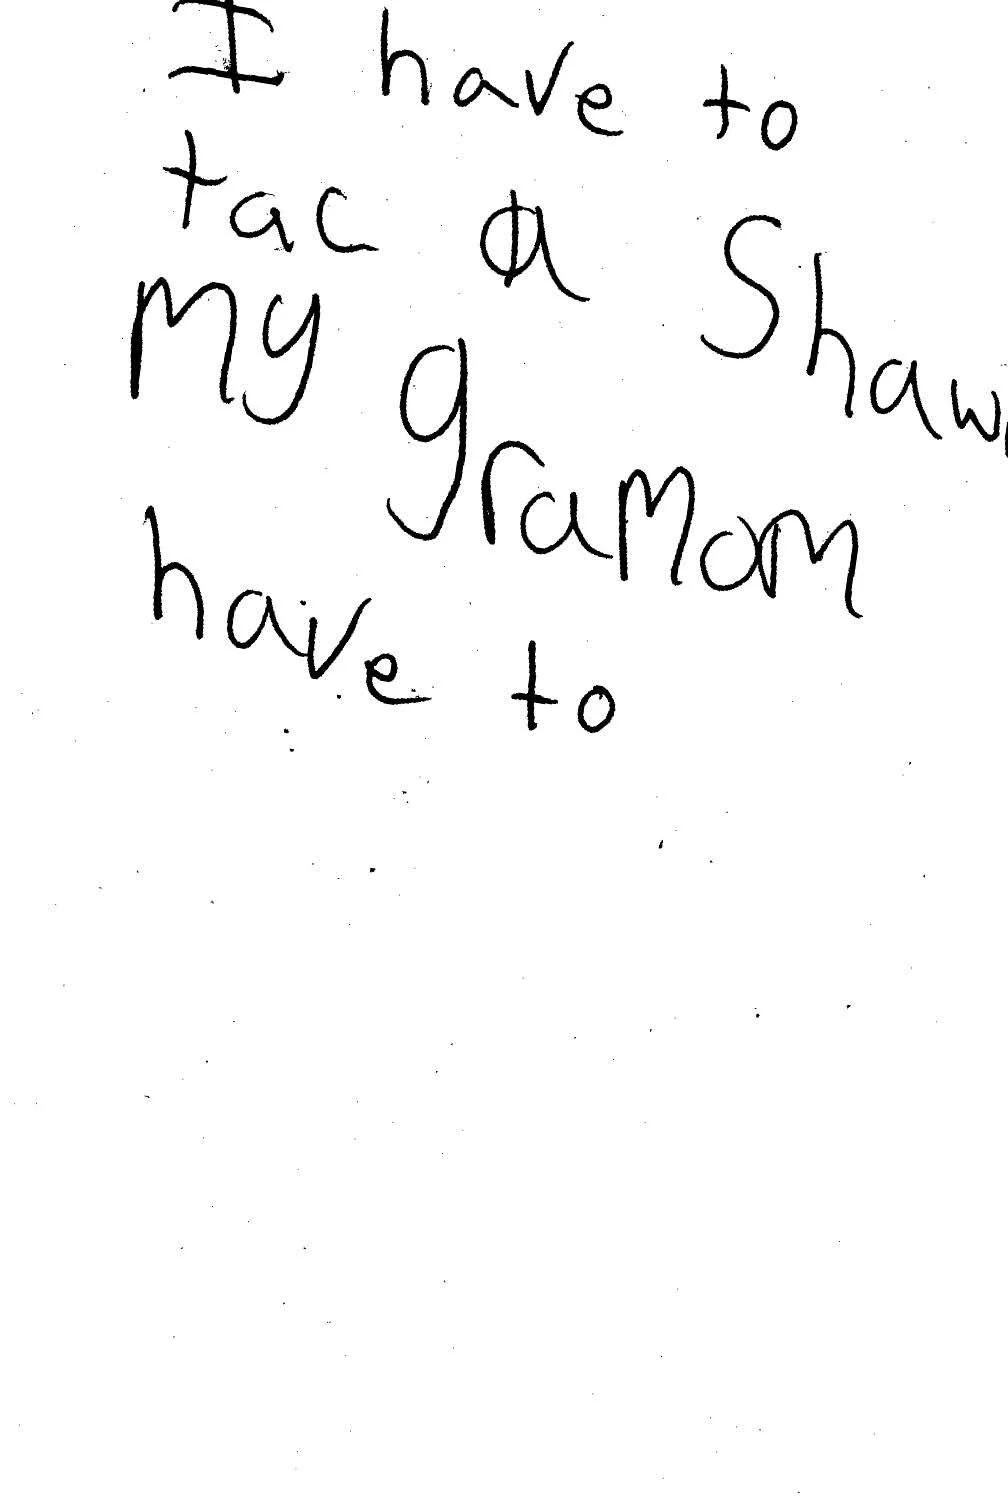 I have to
tac a Shaw
my gramom
have to